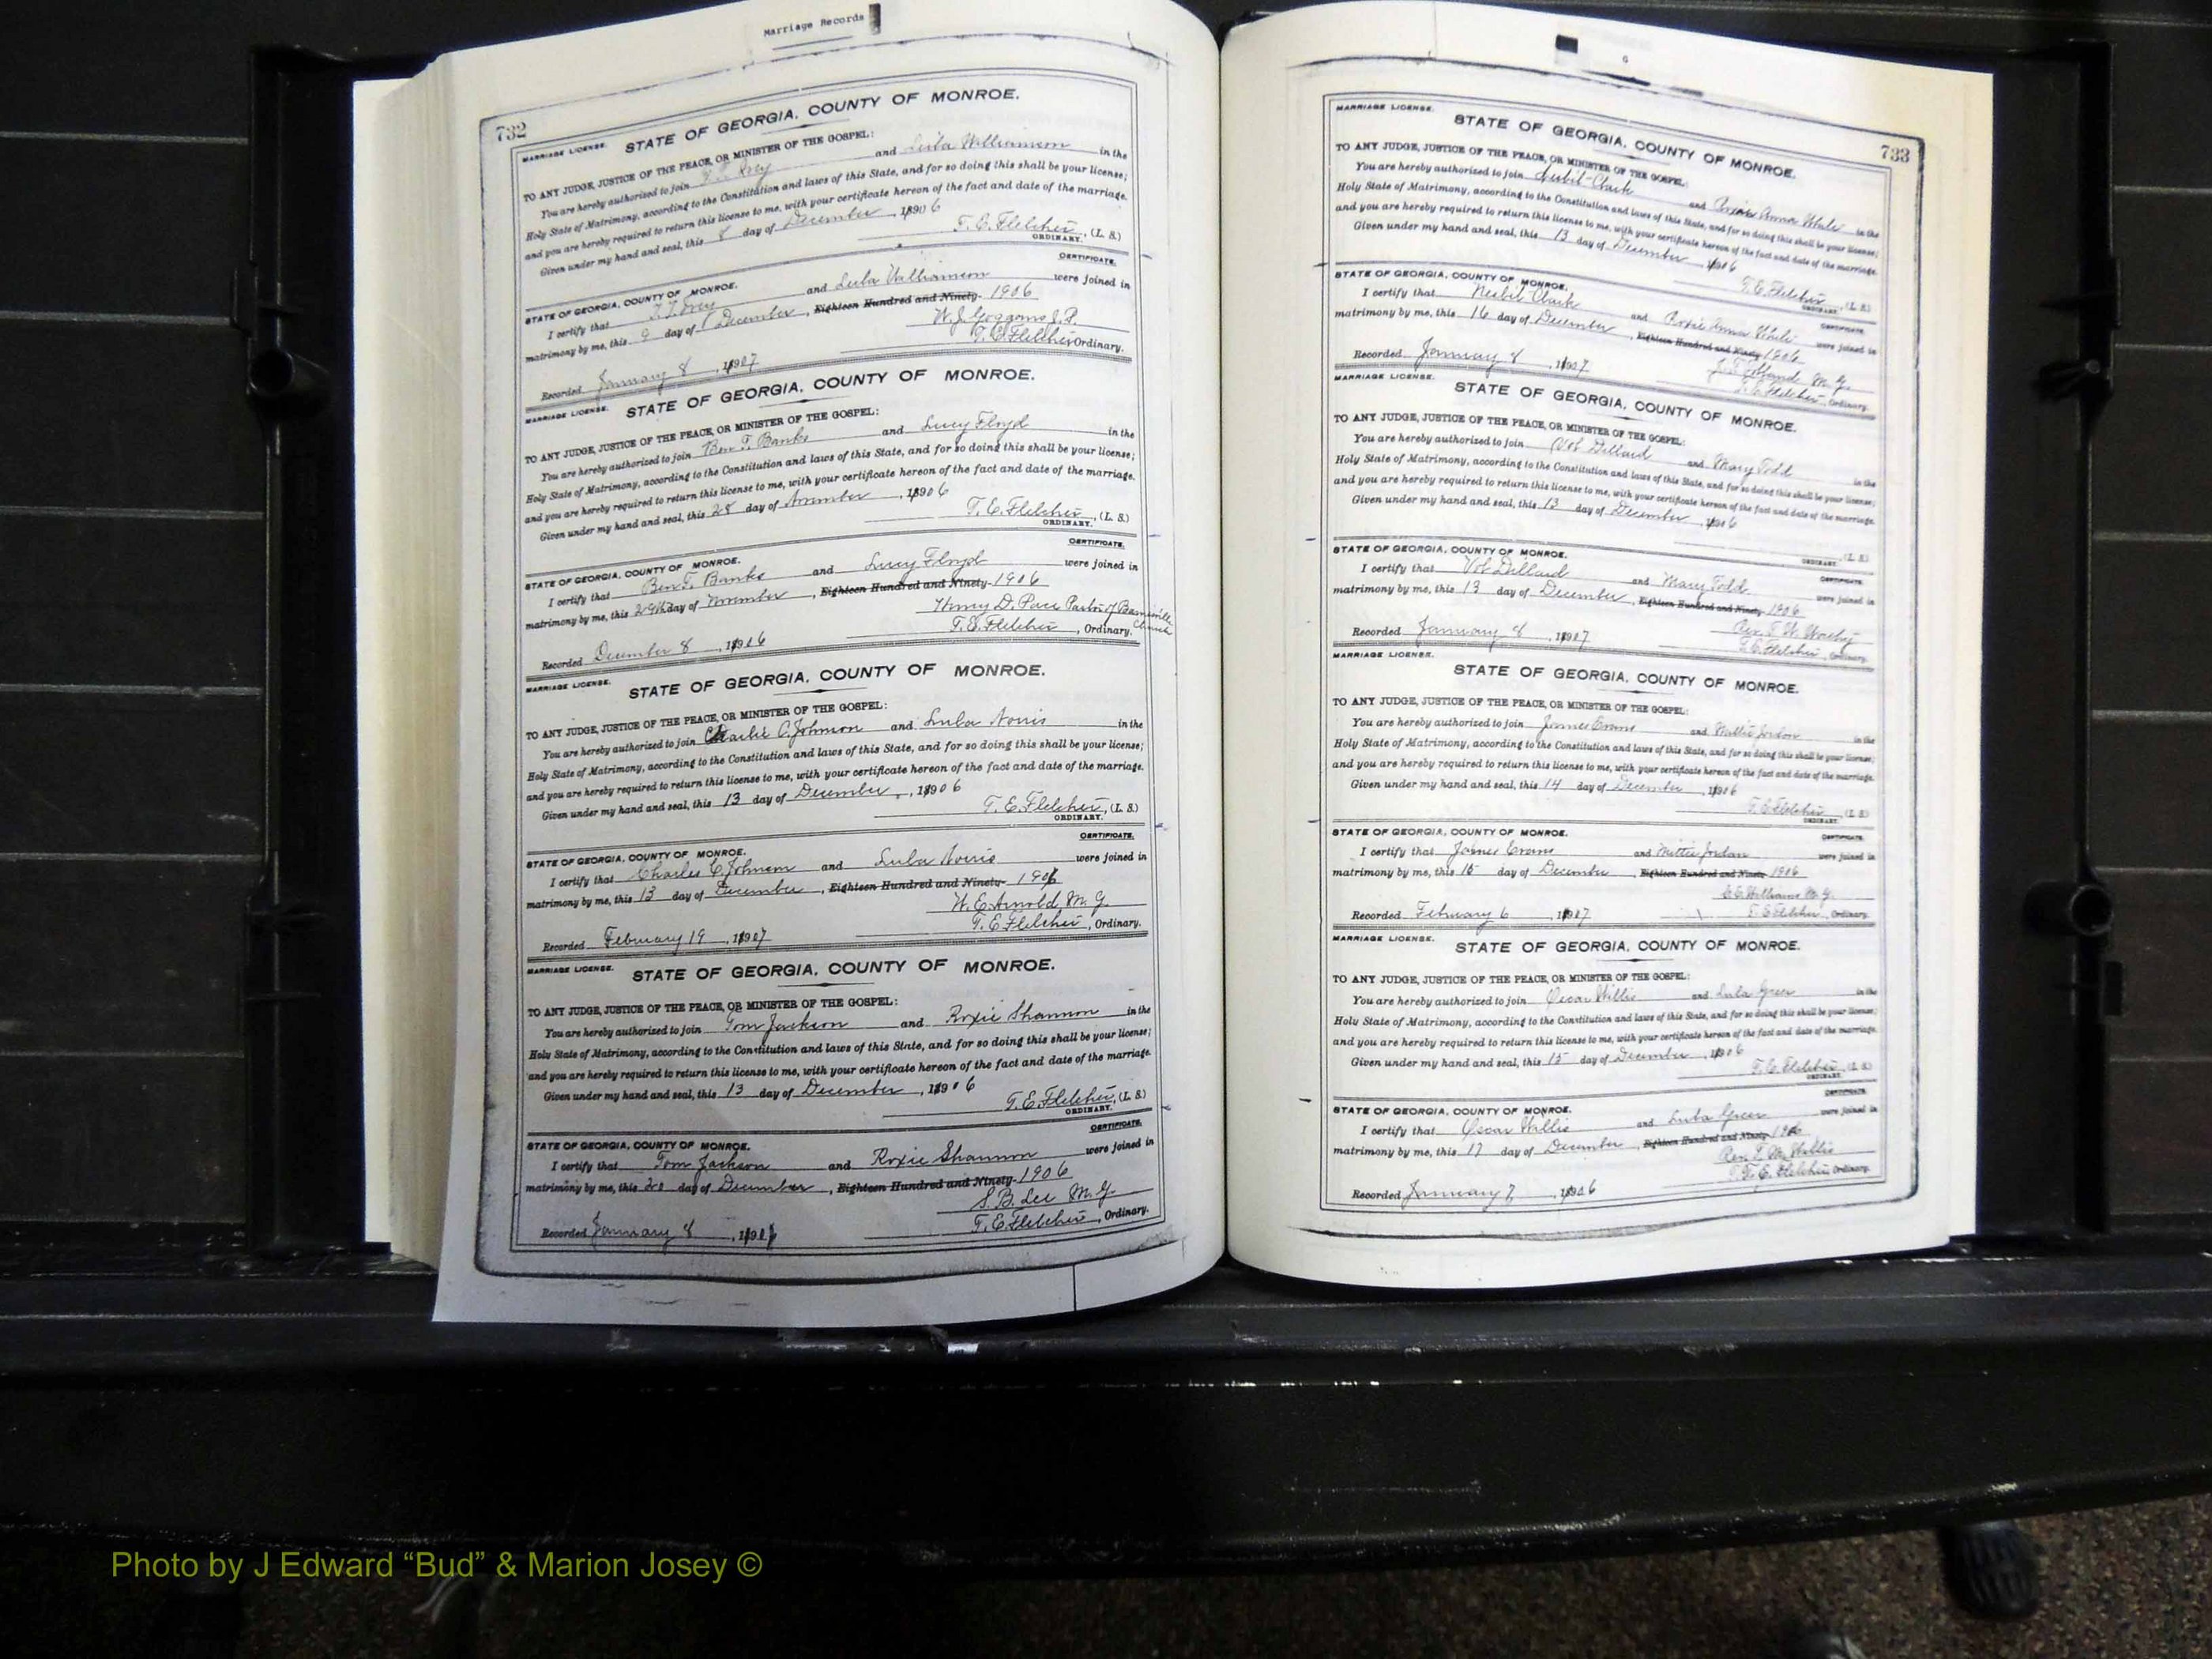 Marriage Records
732
STATE OF GEORGIA, COUNTY OF MONROE.
MARRIAGE LICENSE.
TO ANY JUDGE, JUSTICE OF THE PEACE, OR MINISTER OF THE GOSPEL:
You are hereby authorized to join and Lula Williamson in the
Holy State of Matrimony, according to the Constitution and laws of this State, and for so doing this shall be your license;
and you are hereby required to return this license to me, with your certificate hereon of the fact and date of the marriage.
Given under my hand and seal, this 8 day of December, 1906
T. E. Fletcher, (L. S.)
ORDINARY.
CERTIFICATE.
STATE OF GEORGIA, COUNTY OF MONROE.
I certify that and Lula Williamson were joined in
matrimony by me, this 9 day of December, Eighteen Hundred and Ninety- 1906
W. J. Goggans J. P.
Recorded January 8, 1907 T. E. Fletcher Ordinary.
MARRIAGE LICENSE.
STATE OF GEORGIA, COUNTY OF MONROE.
TO ANY JUDGE, JUSTICE OF THE PEACE, OR MINISTER OF THE GOSPEL:
You are hereby authorized to join Ben T. Banks and Lucy Floyd in the
Holy State of Matrimony, according to the Constitution and laws of this State, and for so doing this shall be your license;
and you are hereby required to return this license to me, with your certificate hereon of the fact and date of the marriage.
Given under my hand and seal, this 28 day of November, 1906
T. E. Fletcher, (L. S.)
ORDINARY.
CERTIFICATE.
STATE OF GEORGIA, COUNTY OF MONROE.
I certify that Ben T. Banks and Lucy Floyd were joined in
matrimony by me, this 29th day of November, Eighteen Hundred and Ninety- 1906
Henry D. Pace Pastor of Barnesville Church
Recorded December 8, 1906 T. E. Fletcher, Ordinary.
MARRIAGE LICENSE.
STATE OF GEORGIA, COUNTY OF MONROE.
TO ANY JUDGE, JUSTICE OF THE PEACE, OR MINISTER OF THE GOSPEL:
You are hereby authorized to join Charlie C. Johnson and Lula Norris in the
Holy State of Matrimony, according to the Constitution and laws of this State, and for so doing this shall be your license;
and you are hereby required to return this license to me, with your certificate hereon of the fact and date of the marriage.
Given under my hand and seal, this 13 day of December, 1906
T. E. Fletcher, (L. S.)
ORDINARY.
CERTIFICATE.
STATE OF GEORGIA, COUNTY OF MONROE.
I certify that Charles C. Johnson and Lula Norris were joined in
matrimony by me, this 13 day of December, Eighteen Hundred and Ninety- 1906
W. E. Arnold, M. G.
Recorded February 19, 1907 T. E. Fletcher, Ordinary.
MARRIAGE LICENSE.
STATE OF GEORGIA, COUNTY OF MONROE.
TO ANY JUDGE, JUSTICE OF THE PEACE, OR MINISTER OF THE GOSPEL:
You are hereby authorized to join Tom Jackson and Roxie Shannon in the
Holy State of Matrimony, according to the Constitution and laws of this State, and for so doing this shall be your license;
and you are hereby required to return this license to me, with your certificate hereon of the fact and date of the marriage.
Given under my hand and seal, this 13 day of December, 1906
T. E. Fletcher, (L. S.)
ORDINARY.
CERTIFICATE.
STATE OF GEORGIA, COUNTY OF MONROE.
I certify that Tom Jackson and Roxie Shannon were joined in
matrimony by me, this 20 day of December, Eighteen Hundred and Ninety- 1906
S. B. Lee M. G.
Recorded January 8, T. E. Fletcher, Ordinary.
733
MARRIAGE LICENSE.
STATE OF GEORGIA, COUNTY OF MONROE.
TO ANY JUDGE, JUSTICE OF THE PEACE, OR MINISTER OF THE GOSPEL:
You are hereby authorized to join Nesbit Clark and Roxie Anna White in the
Holy State of Matrimony, according to the Constitution and laws of this State, and for so doing this shall be your license;
and you are hereby required to return this license to me, with your certificate hereon of the fact and date of the marriage.
Given under my hand and seal, this 13 day of December, 1906
T. E. Fletcher, (L. S.)
ORDINARY.
CERTIFICATE.
STATE OF GEORGIA, COUNTY OF MONROE.
I certify that Nesbit Clark and Roxie Anna White were joined in
matrimony by me, this 16 day of December, Eighteen Hundred and Ninety- 1906
M. G.
Recorded January 8, 1907 T. E. Fletcher, Ordinary.
MARRIAGE LICENSE.
STATE OF GEORGIA, COUNTY OF MONROE.
TO ANY JUDGE, JUSTICE OF THE PEACE, OR MINISTER OF THE GOSPEL:
You are hereby authorized to join Dillard and Mary Todd in the
Holy State of Matrimony, according to the Constitution and laws of this State, and for so doing this shall be your license;
and you are hereby required to return this license to me, with your certificate hereon of the fact and date of the marriage.
Given under my hand and seal, this 13 day of December, 1906
(L. S.)
ORDINARY.
CERTIFICATE.
STATE OF GEORGIA, COUNTY OF MONROE.
I certify that Dillard and Mary Todd were joined in
matrimony by me, this 13 day of December, Eighteen Hundred and Ninety- 1906
Rev. F. W. Worthy
Recorded January 8, 1907 T. E. Fletcher, Ordinary.
MARRIAGE LICENSE.
STATE OF GEORGIA, COUNTY OF MONROE.
TO ANY JUDGE, JUSTICE OF THE PEACE, OR MINISTER OF THE GOSPEL:
You are hereby authorized to join James Evans and Mittie Jordan in the
Holy State of Matrimony, according to the Constitution and laws of this State, and for so doing this shall be your license;
and you are hereby required to return this license to me, with your certificate hereon of the fact and date of the marriage.
Given under my hand and seal, this 14 day of December, 1906
T. E. Fletcher (L. S.)
ORDINARY.
CERTIFICATE.
STATE OF GEORGIA, COUNTY OF MONROE.
I certify that James Evans and Mittie Jordan were joined in
matrimony by me, this 15 day of December, Eighteen Hundred and Ninety- 1906
Williams M. G.
Recorded February 6, 1907 T. E. Fletcher, Ordinary.
MARRIAGE LICENSE.
STATE OF GEORGIA, COUNTY OF MONROE.
TO ANY JUDGE, JUSTICE OF THE PEACE, OR MINISTER OF THE GOSPEL:
You are hereby authorized to join Oscar Willis and Lula Greer in the
Holy State of Matrimony, according to the Constitution and laws of this State, and for so doing this shall be your license;
and you are hereby required to return this license to me, with your certificate hereon of the fact and date of the marriage.
Given under my hand and seal, this 15 day of December, 1906
T. E. Fletcher, (L. S.)
ORDINARY.
CERTIFICATE.
STATE OF GEORGIA, COUNTY OF MONROE.
I certify that Oscar Willis and Lula Greer were joined in
matrimony by me, this 17 day of December, Eighteen Hundred and Ninety- 1906
Rev. F. M. Willis
Recorded January 7, 1906 T. E. Fletcher, Ordinary.
Photo by J Edward “Bud” & Marion Josey ©